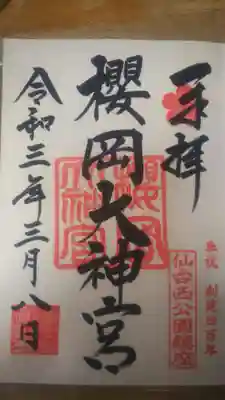 奉拝
櫻岡大神宮
令和三年三月八日
櫻岡大神宮
仙台西公園鎮座
創建四百年